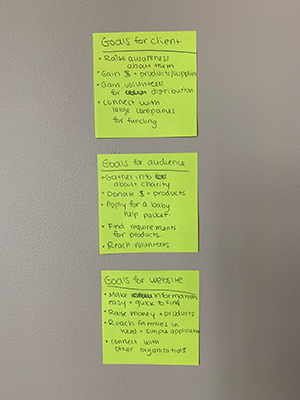 Goals for client
• Raise awareness
about them
• Gain $ + products/supplies
• Gain volunteers
for distribution
• Connect with
large companies
for funding
Goals for audience
• Gather info
about charity
• Donate $ + products
• Apply for a baby
help packet.
• Find requirements
for products.
• Reach volunteers
Goals for website
• Make information
easy + quick to find
• Raise money + products
• Reach families in
need + simple application
• Connect with
other organizations